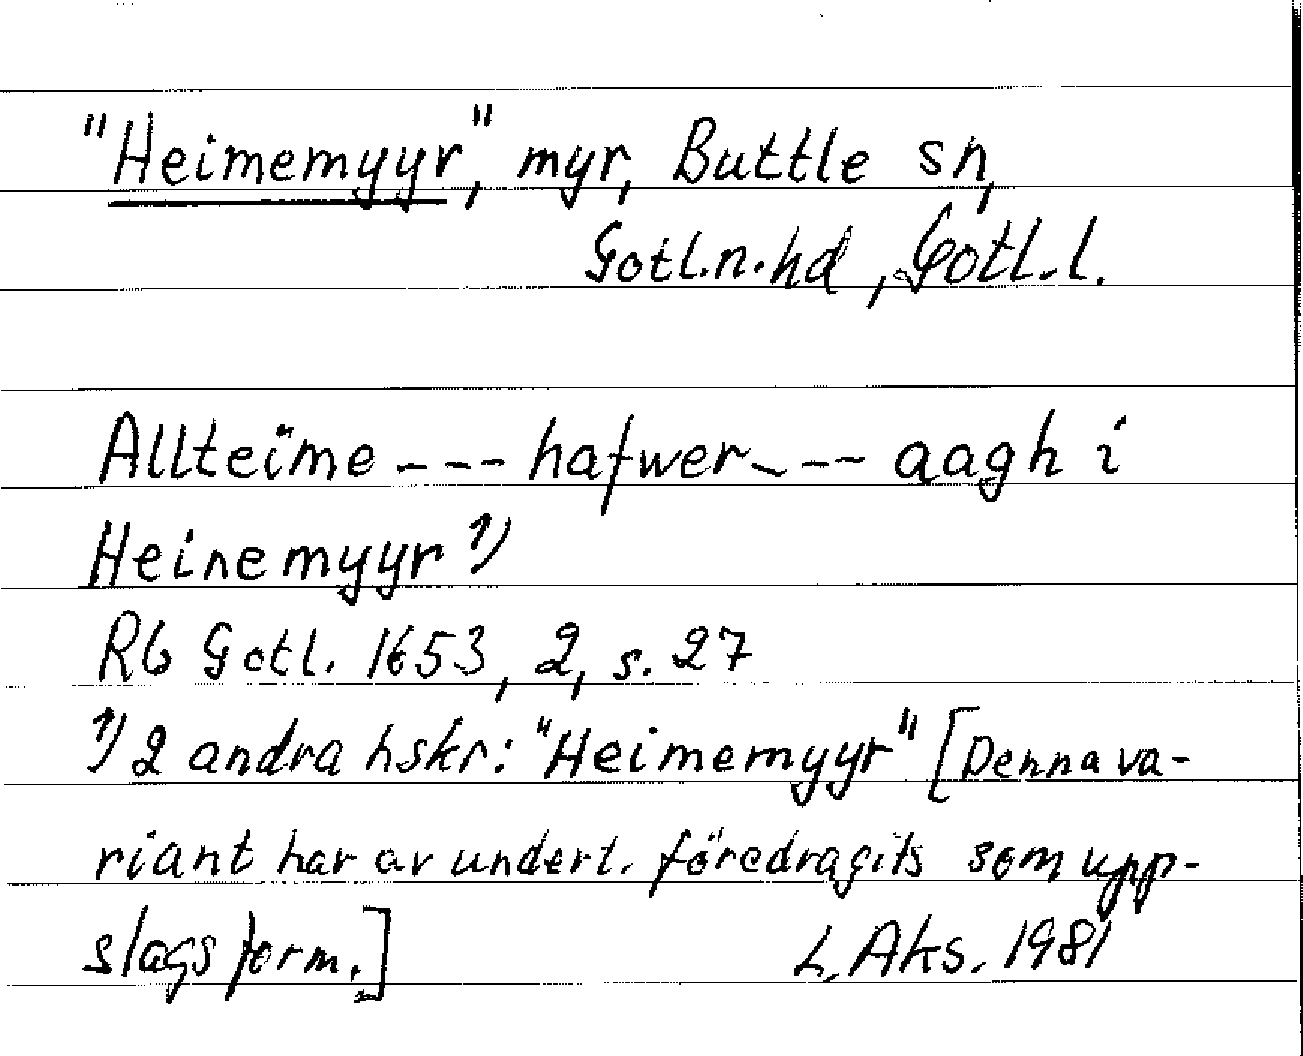 "Heimemyyr," myr, Buttle sn,
Gotl.n.hd, Gotl.l.
Allteïme --- hafwer --- aagh i
Heinemyyr 1)
Rb Gotl. 1653, 2, s. 27
1) 2 andra hskr: "Heimemyyr" [Denna va-
riant har av undert. föredragits som upp-
slagsform.]
L. Aks. 1981